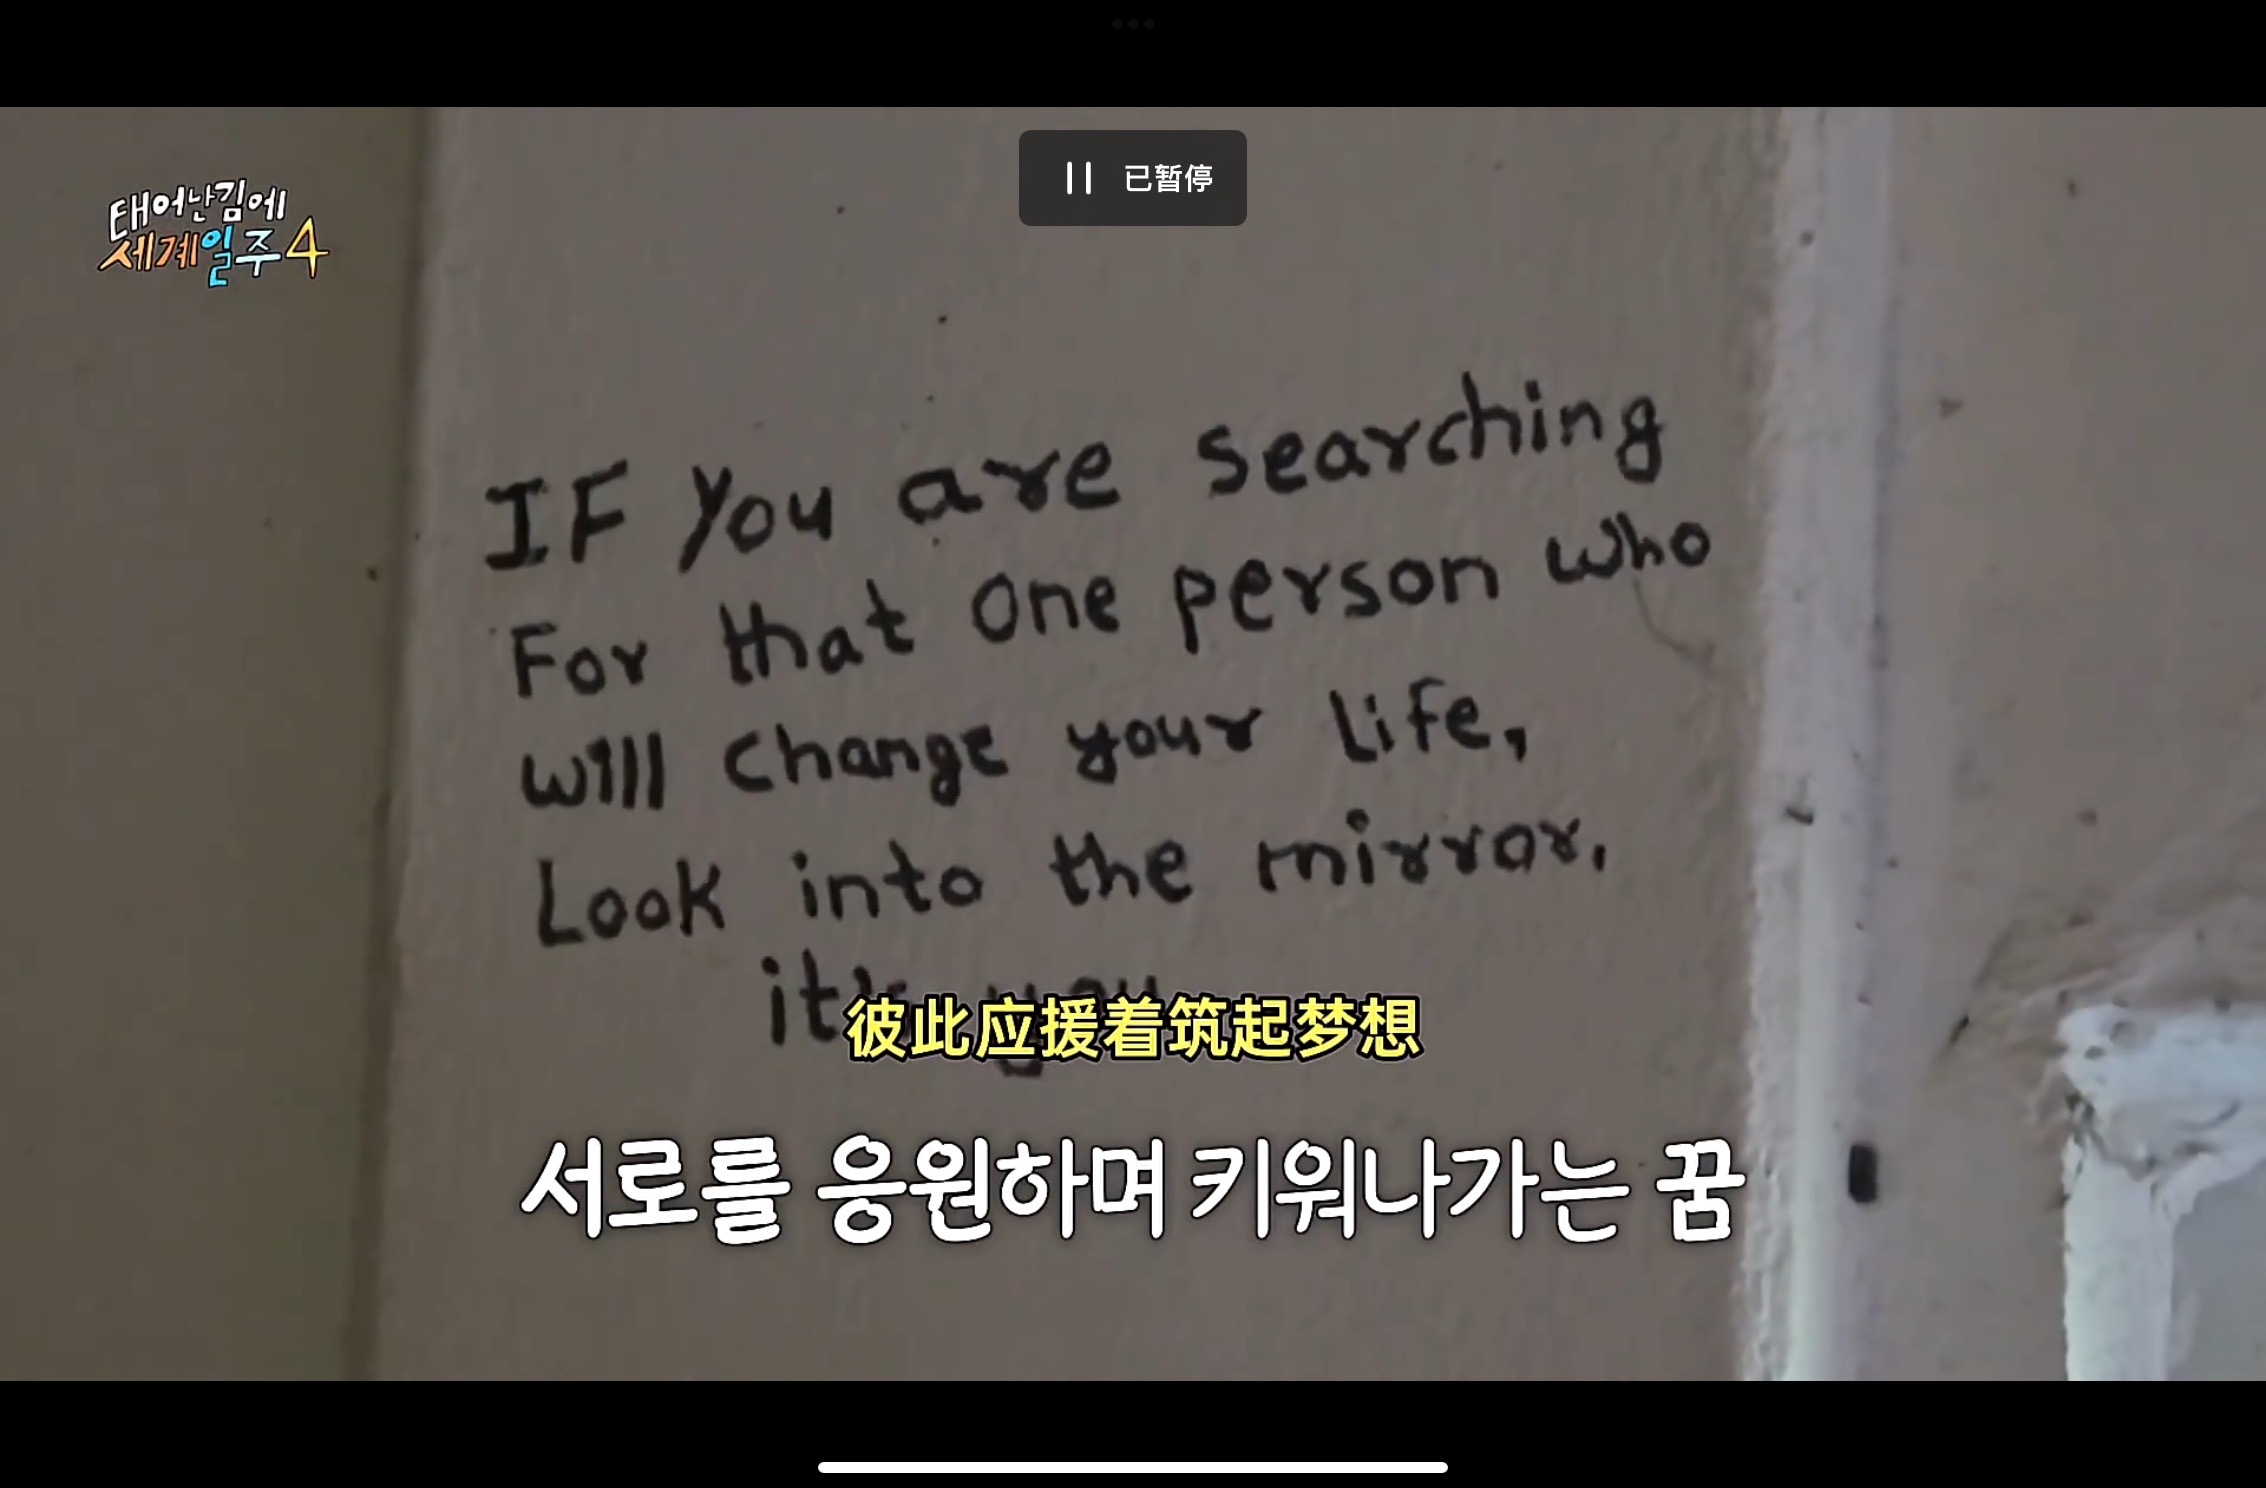 已暂停
태어난김에
세계일주4
IF you are searching
For that one person who
will change your life,
Look into the mirror.
it's you
彼此应援着筑起梦想
서로를 응원하며 키워나가는 꿈